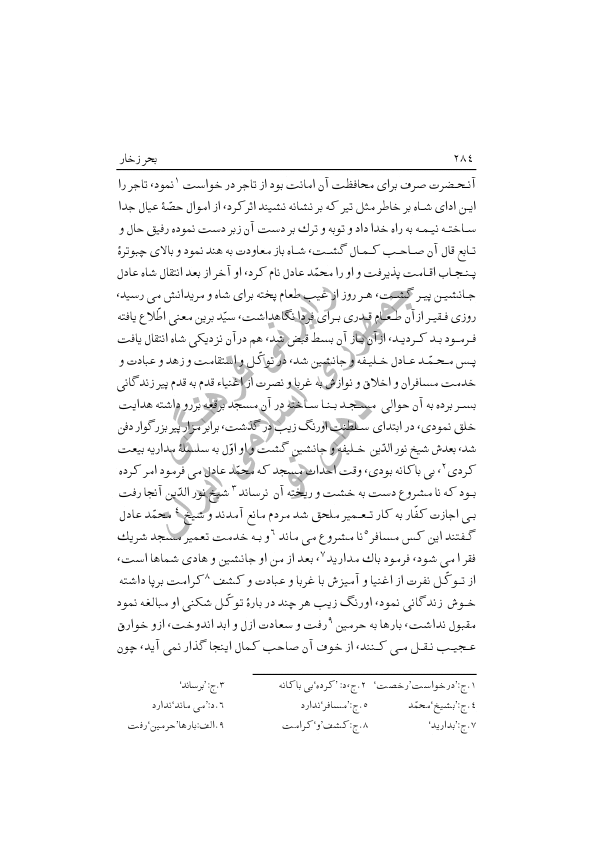 ۲۸٤ بحر زخار
آنـحـضرت صرف برای محافظت آن امانت بود از تاجر در خواست ۱ نمود، تاجر را
ایـن ادای شـاه بر خاطر مثل تیر که بر نشانه نشیند اثر کرد، از اموال حصّهٔ عیال جدا
سـاخـتـه نیـمـه به راه خدا داد و توبه و ترك بر دست آن زبر دست نموده رفیق حال و
تـابع قال آن صـاحـب کـمـال گشـت، شـاه باز معاودت به هند نمود و بالای چبوترهٔ
پـنـجـاب اقـامت پذیرفت و او را محمّد عادل نام کرد، او آخر از بعد انتقال شاه عادل
جـانشیـن پیـر گشـت، هـر روز از غیب طعام پخته برای شاه و مریدانش می رسید،
روزی فـقیـر از آن طـعـام قـدری بـرای فردا نگاهداشت، سیّد برین معنی اطّلاع یافته
فـرمـود بـد کـردیـد، از آن بـاز آن بسط قبض شد، هم در آن نزدیکی شاه انتقال یافت
پـس مـحـمّـد عـادل خـلیـفه و جانشین شد، در توکّل و استقامت و زهد و عبادت و
خدمت مسافران و اخلاق و نوازش به غربا و نصرت از اغنیاء قدم به قدم پیر زندگانی
بسـر برده به آن حوالی مسـجـد بـنـا سـاخته در آن مسجد برقعه بررو داشته هدایت
خلق نمودی، در ابتدای سـلطنت اورنگ زیب در گذشت، برابر مزار پیر بزرگوار دفن
شد، بعدش شیخ نور الدّین خـلیفه و جانشین گشت و او اوّل به سلسلهٔ مداریه بیعت
کردی۲، بی باکانه بودی، وقت احداث مسجد که محمّد عادل می فرمود امر کرده
بـود که نا مشروع دست به خشت و ریخته آن نرساند۳ شیخ نور الدّین آنجا رفت
بـی اجازت کفّار به کار تـعـمیر ملحق شد مردم مانع آمدند و شیخ ٤ محمّد عادل
گـفتند این کس مسافر ٥ نا مشروع می ماند ٦ و بـه خدمت تعمیر مسجد شریك
فقرا می شود، فرمود باك مدارید۷، بعد از من او جانشین و هادی شماها است،
از تـوکّـل نفرت از اغنیا و آمیزش با غربا و عبادت و کشف ۸ کرامت برپا داشته
خـوش زندگانی نمود، اورنگ زیب هر چند در بارهٔ توکّل شکنی او مبالغه نمود
مقبول نداشت، بارها به حرمین ۹ رفت و سعادت ازل و ابد اندوخت، ازو خوارق
عـجیـب نـقـل مـی کـنـند، از خوف آن صاحب کمال اینجا گذار نمی آید، چون
۱.ج:'درخواست'رخصت' ۲.ج،د: 'کرده'بی باکانه ۳.ج:'برساند'
٤.ج:'بشیخ'محمّد ٥.ج:'مسافر'ندارد ٦.د:'می ماند'ندارد
۷.ج:'بدارید' ۸.ج:کشف'و'کرامت ۹.الف:بارها'حرمین'رفت